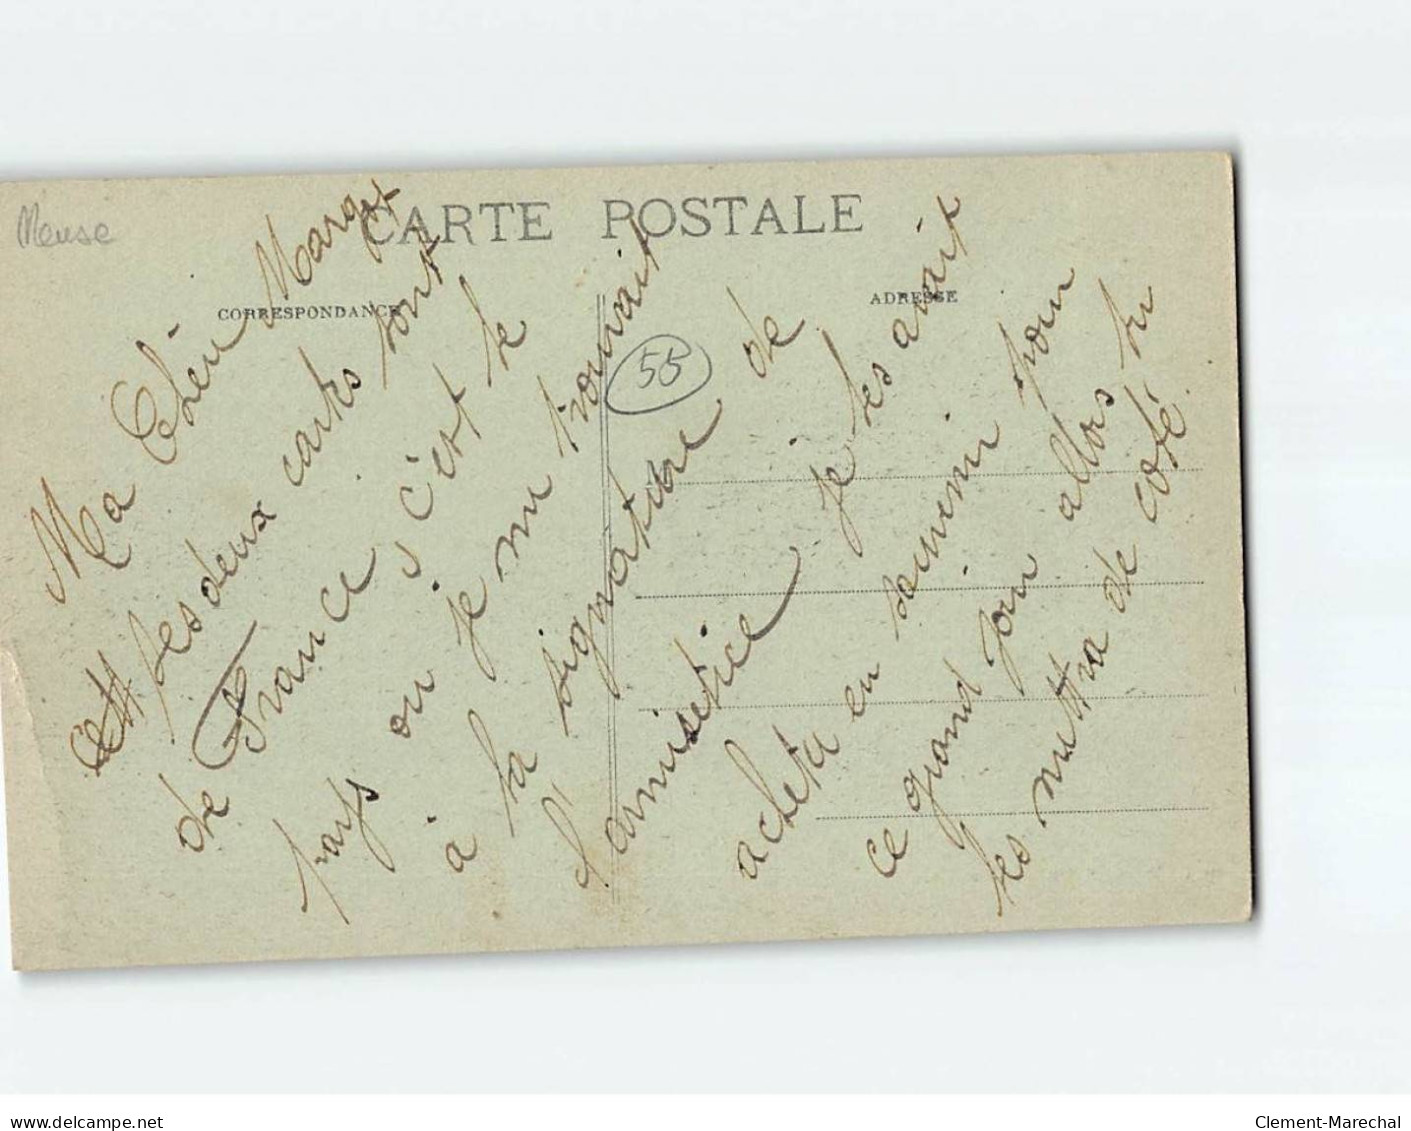 Meuse
CARTE POSTALE
CORRESPONDANCE
ADRESSE
55
Ma Chèu Margot
ses deux cartes sont
de France, c'est le
pays ou je me trouvait
à la signature de
l'armisetice je les avait
acheter en souvenir pour
ce grand jour allors tu
les mettra de coté.
delcampe.net
Clement-Marechal